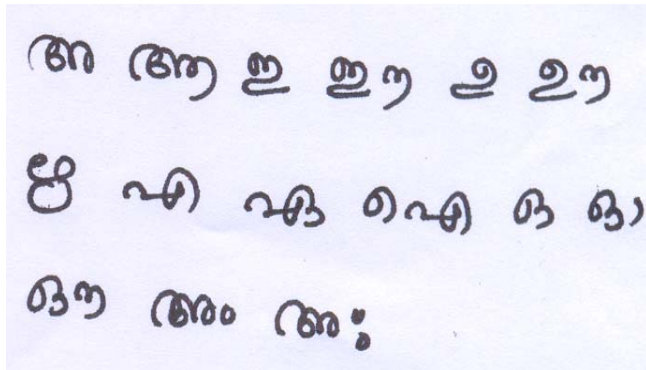 അ ആ ഇ ഈ ഉ ഊ
ഋ എ ഏ ഐ ഒ ഓ
ഔ അം അഃ